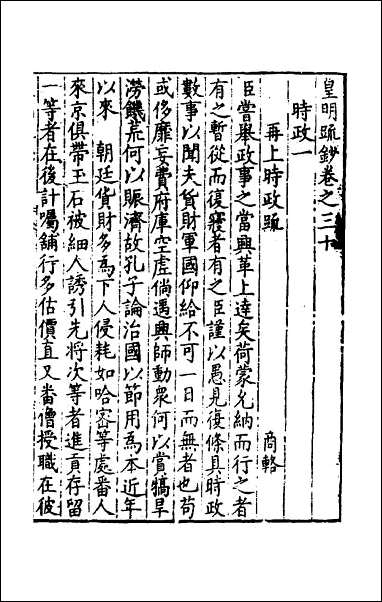 皇明疏鈔卷之三十
時政一
再上時政疏　商輅
臣嘗舉政事之當興革上達矣荷蒙允納而行之者
有之暫從而復寢者有之臣謹以愚見復條具時政
數事以聞夫貨財軍國仰給不可一日而無者也苟
或侈靡妄費府庫空虛倘遇興師動衆何以賞犒旱
澇饑荒何以賑濟故孔子論治國以節用為本近年
以來　朝廷貨財多為下人侵耗如哈密等處番人
來京俱帶玉石被細人誘引先將次等者進貢存留
一等者在後計囑舖行多估價直又番僧授職在彼